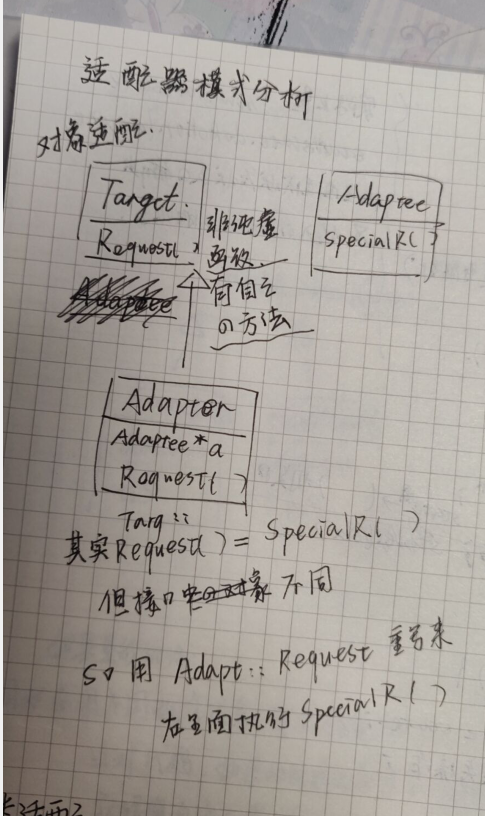 适配器模式分析
对象适配.
Target.
Request( )
非纯虚
函数.
有自己
の方法
Adaptee
SpecialR( )
Adaptee
Adapter
Adaptee*a
Request( )
Targ::
其实Request( ) = SpecialR( )
但接口 不同
so 用 Adapt::Request 重写来
在里面执行SpecialR( )
适配